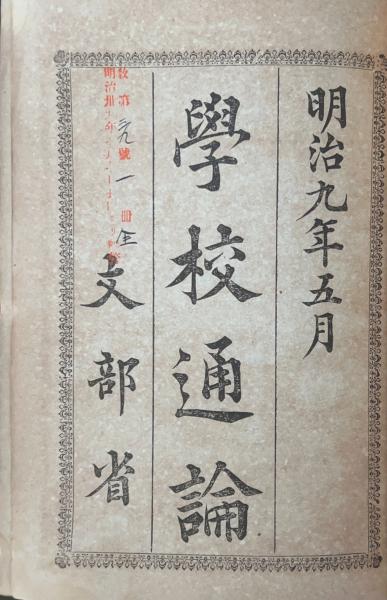 明治九年五月
學校通論
文部省
教第九號一冊全
明治卅